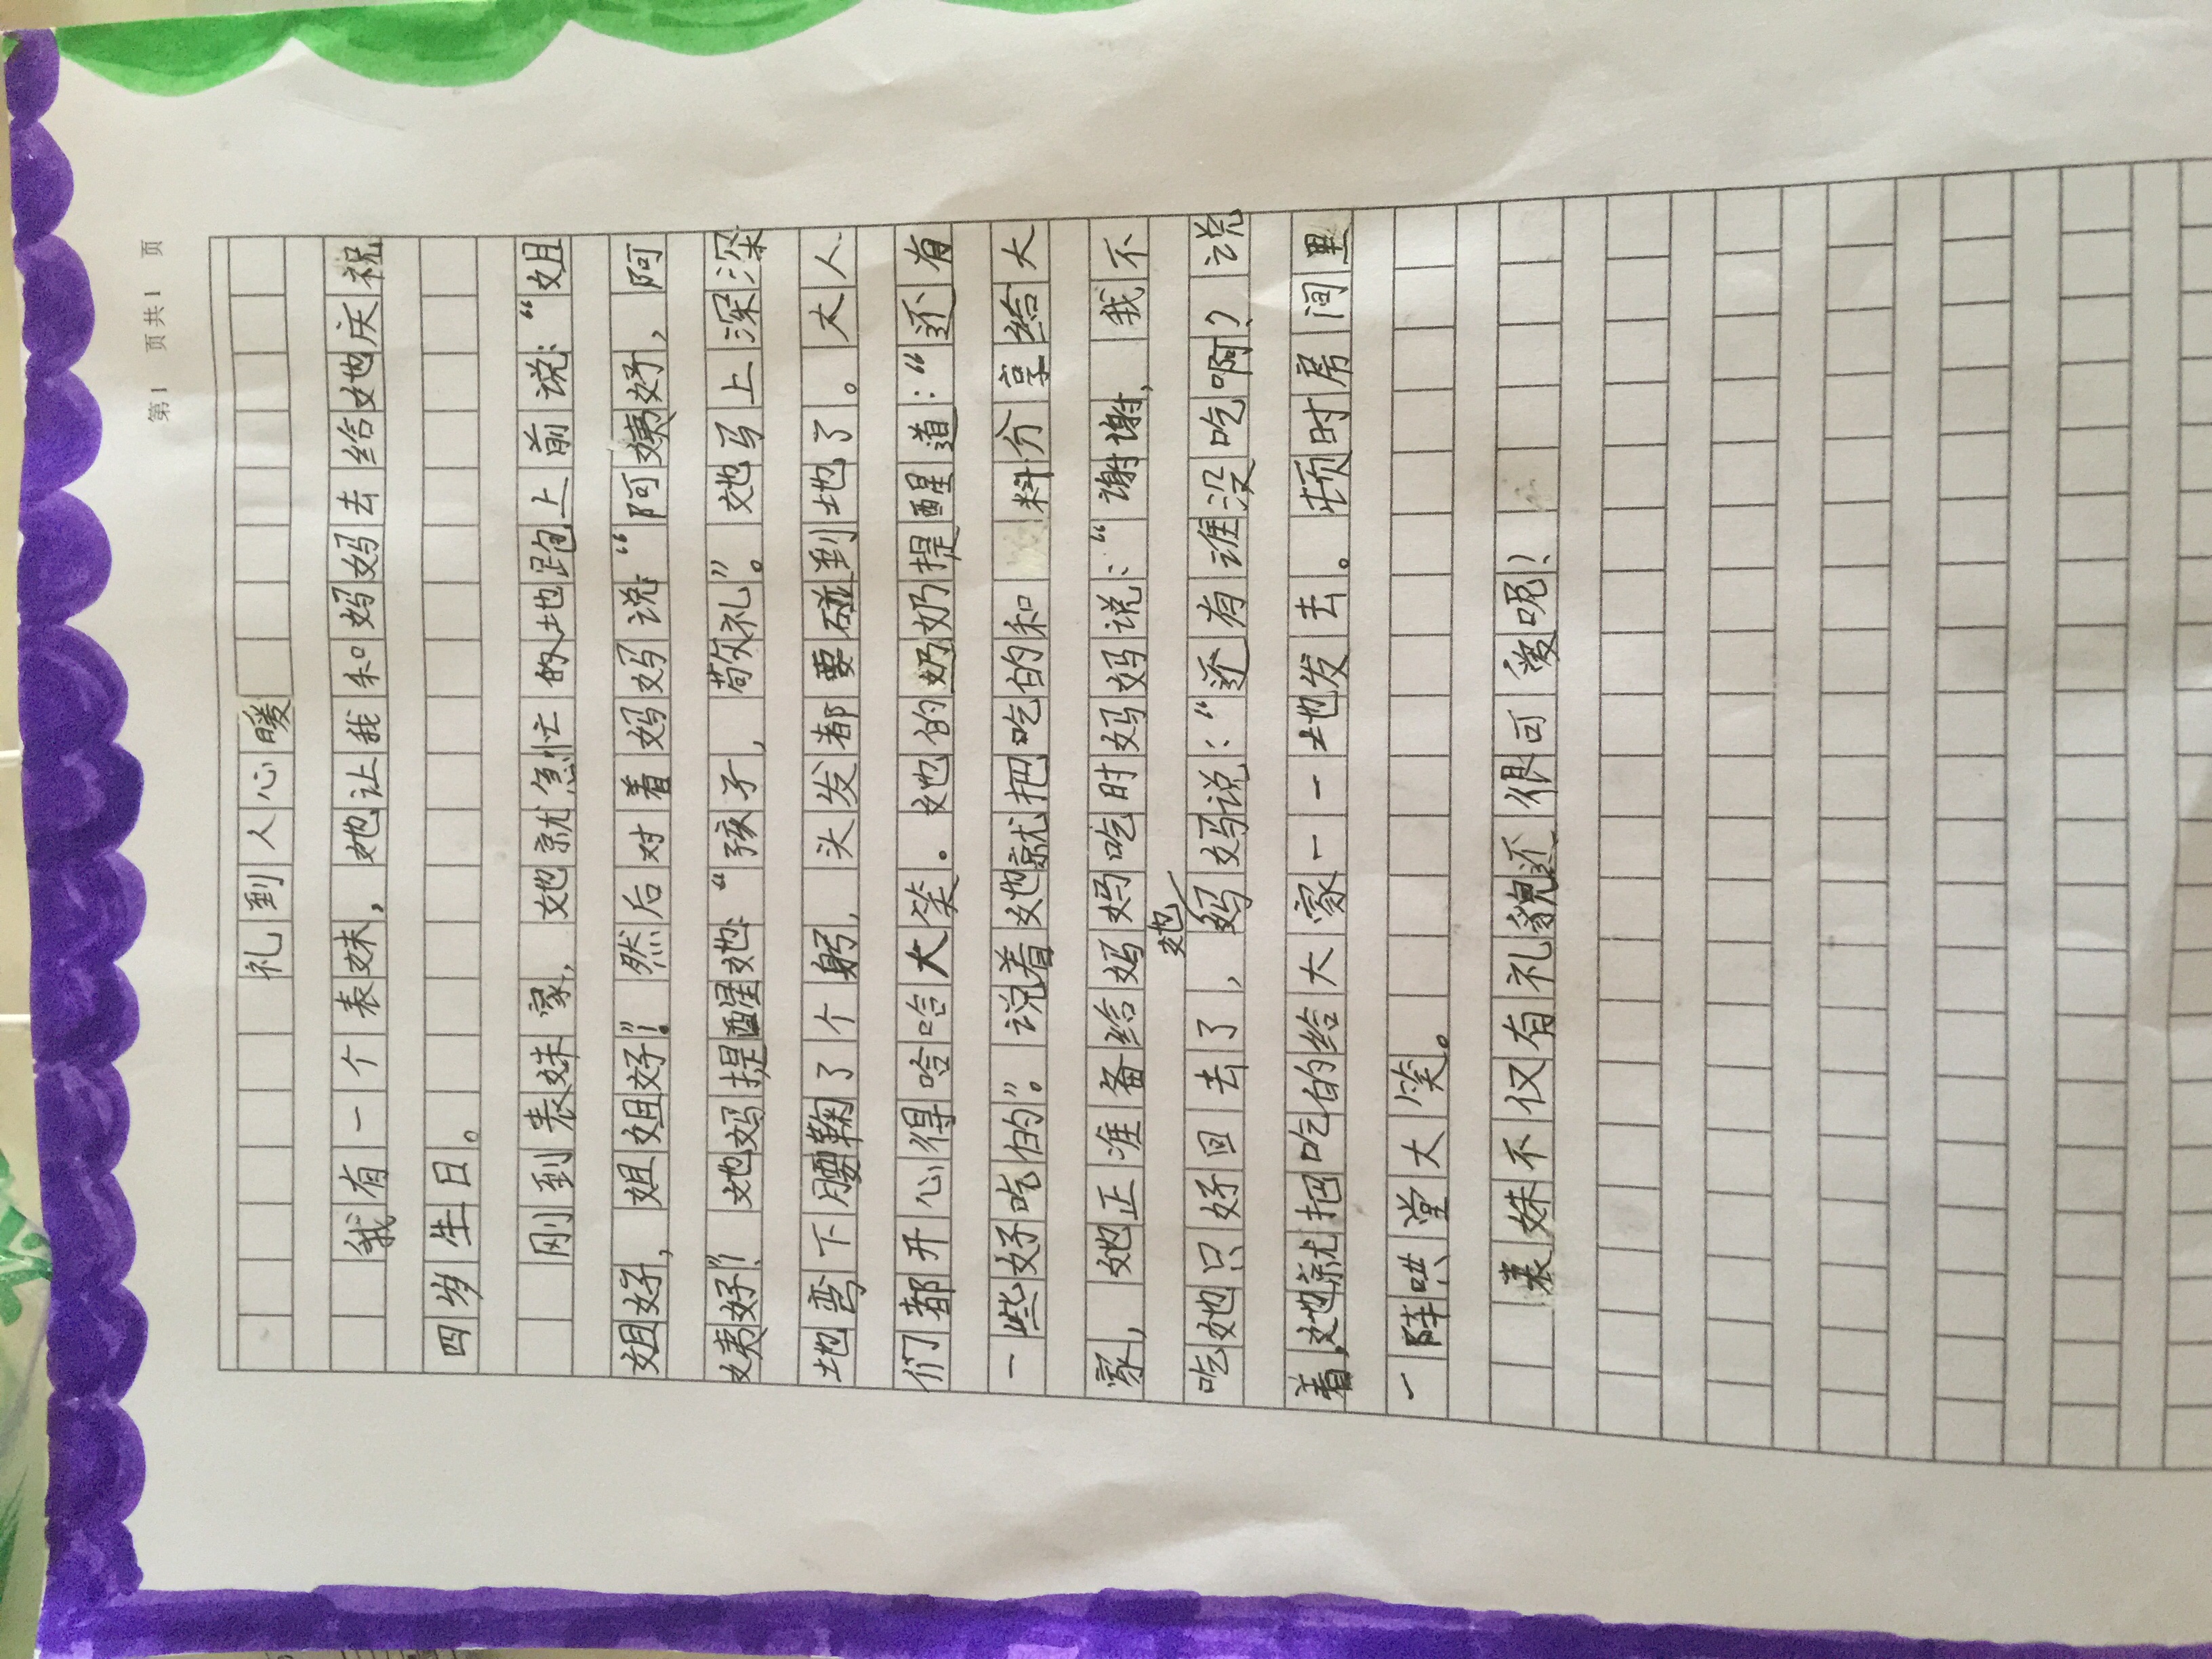 第1 页共1 页
礼到人心暖
我有一个表妹，她让我和妈妈去给她庆祝
四岁生日。
刚到表妹家，她就急忙的地跑上前说：“姐
姐好，姐姐好！”然后对着妈妈说：“阿姨好，阿
姨好”！她妈提醒她：“孩子，敬礼”。她马上深深
地弯下腰鞠了个躬，头发都要碰到地了。大人
们都开心得哈哈大笑。她的奶奶提醒道：“还有
一些好吃的”。说着她就把吃的和料分享给大
家，她正准备给妈妈吃时妈妈说：“谢谢，我不
吃她只好回去了，她妈妈说：“还有谁没吃啊？说
着，她就把吃的给大家一一地发去。顿时房间里
一阵哄堂大笑。
表妹不仅有礼貌还很可爱呢！